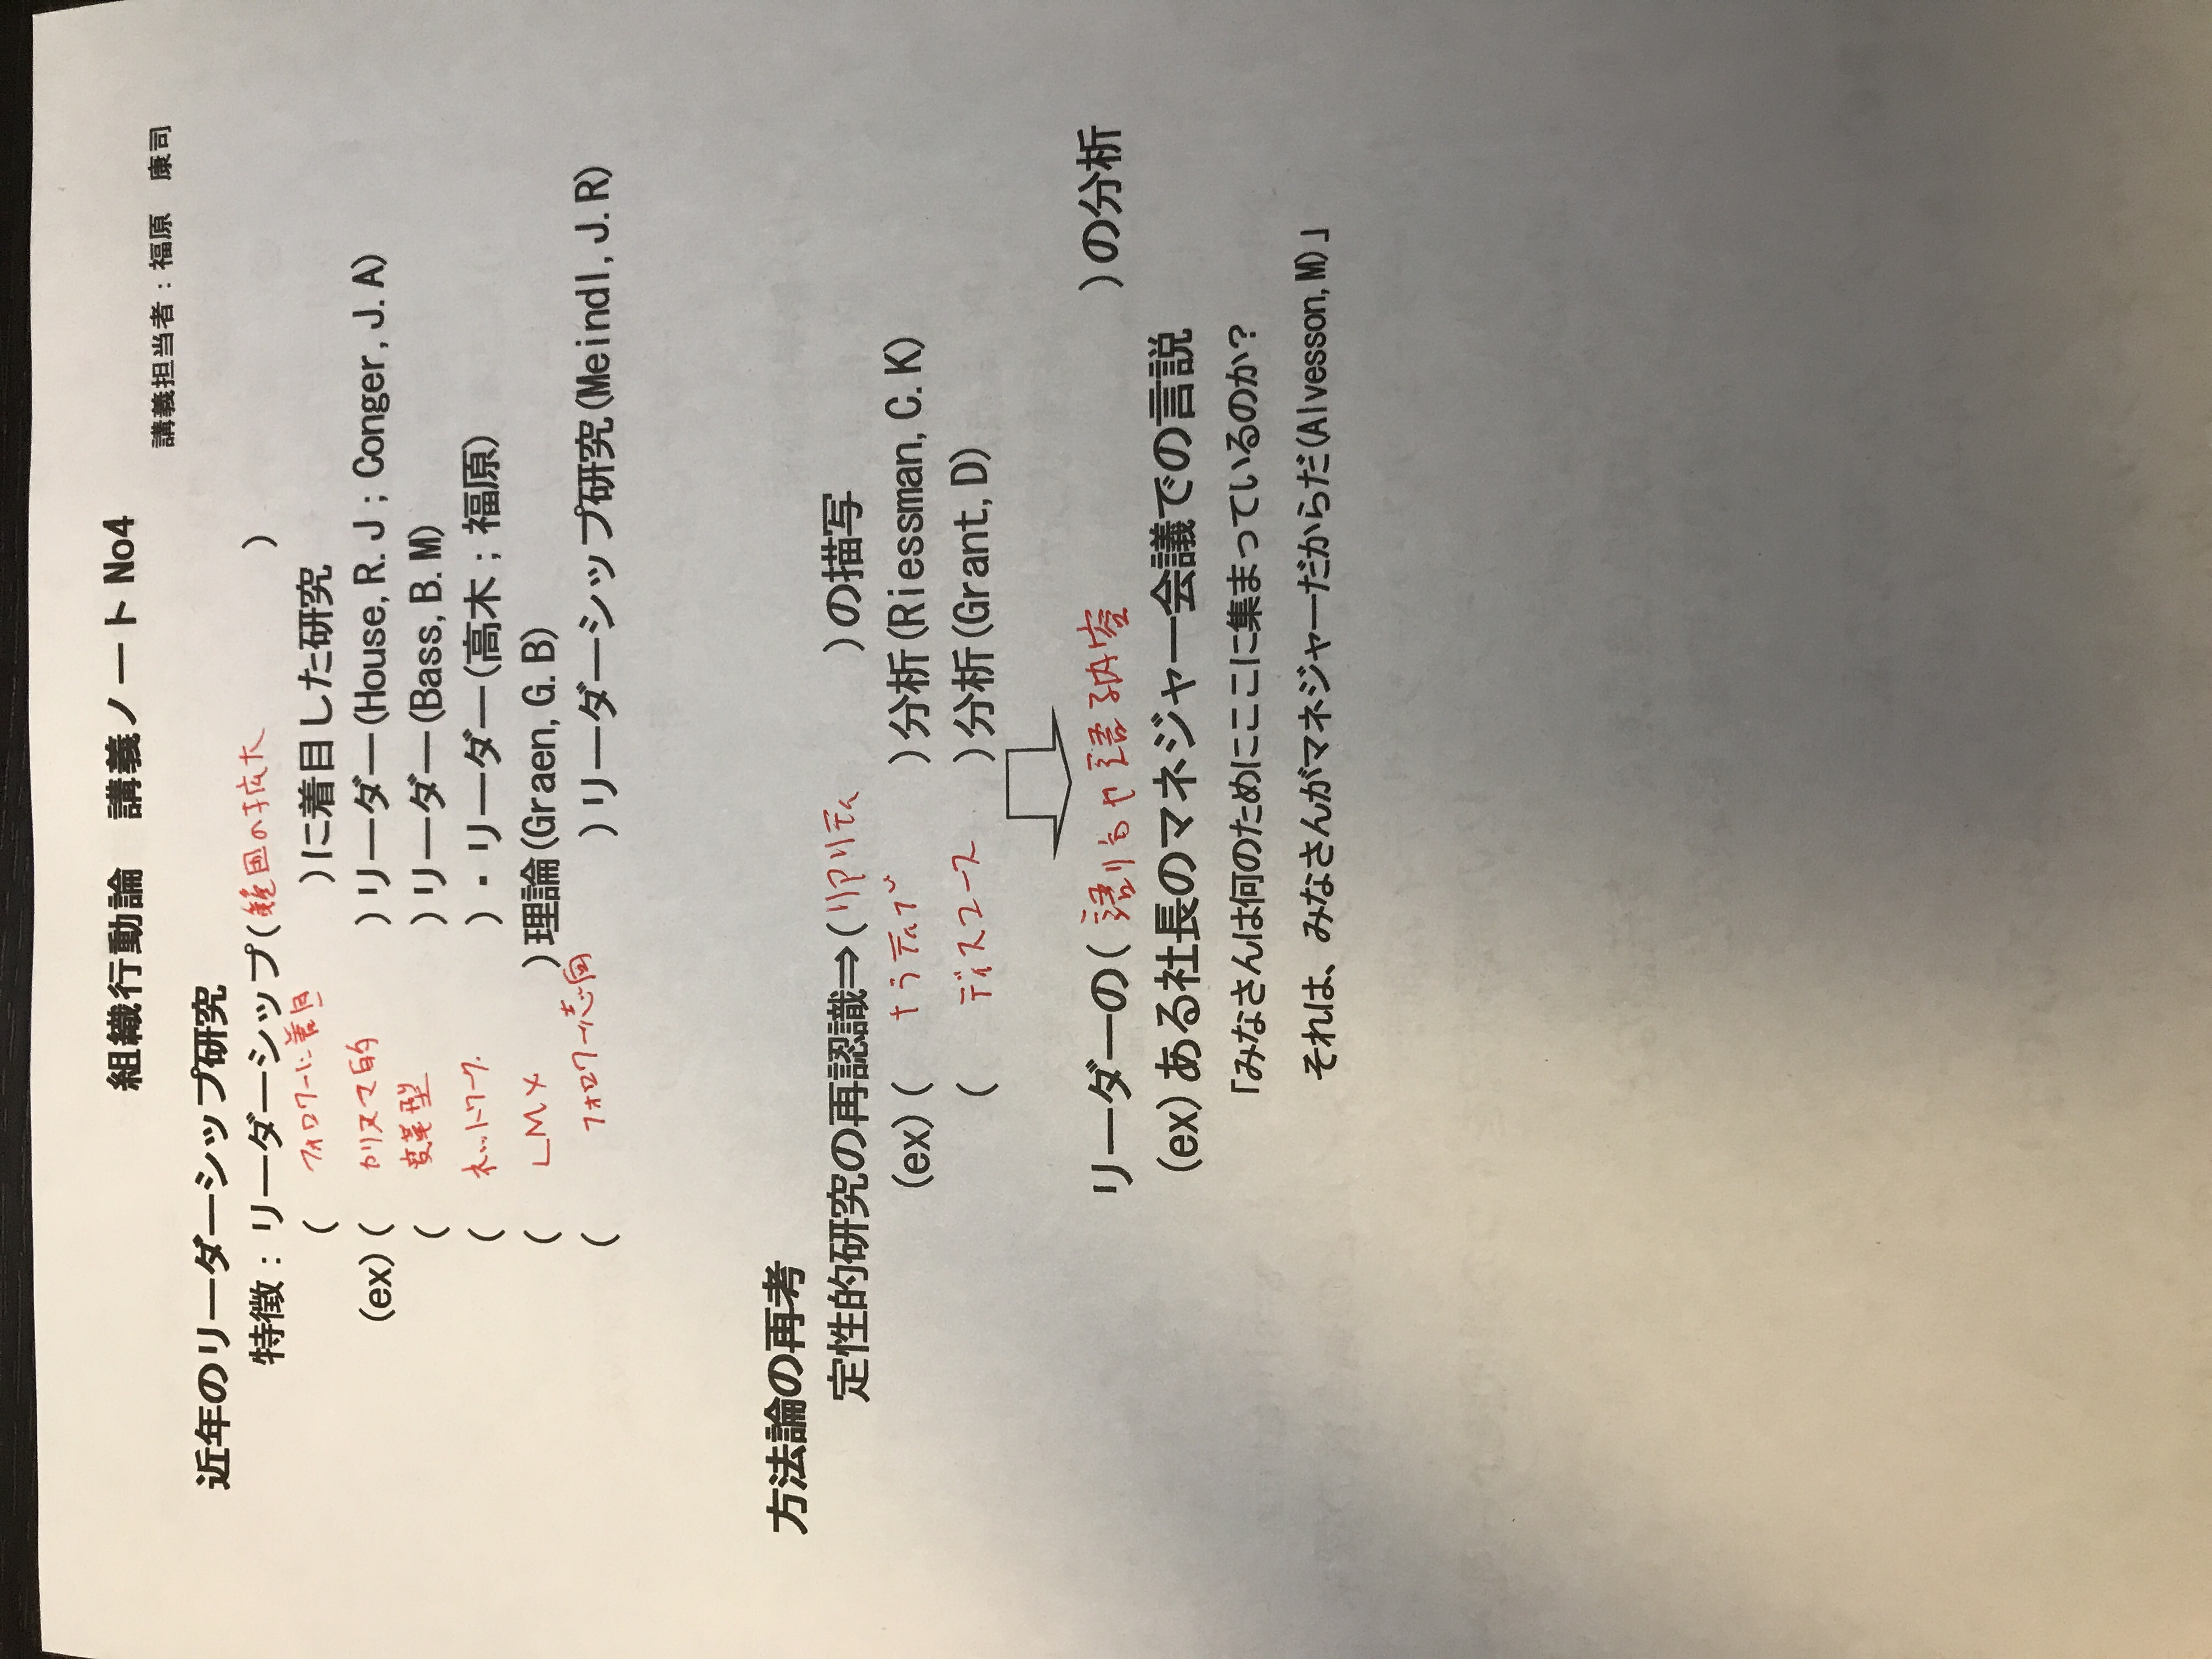 組織行動論　講義ノート No4
講義担当者：福原　康司
近年のリーダーシップ研究
特徴：リーダーシップ(範囲の拡大)
(フォロワーに着目)に着目した研究
(ex)(カリスマ的)リーダー(House, R. J；Conger, J. A)
(変革型)リーダー(Bass, B. M)
(ネットワーク)・リーダー(高木；福原)
(LMX)理論(Graen, G. B)
(フォロワー志向)リーダーシップ研究(Meindl, J. R)
方法論の再考
定性的研究の再認識⇒(リアリティ)の描写
(ex)(ナラティブ)分析(Riessman, C. K)
(ディスコース)分析(Grant, D)
リーダーの(語り方や語る内容)の分析
(ex)ある社長のマネジャー会議での言説
「みなさんは何のためにここに集まっているのか？
それは、みなさんがマネジャーだからだ(Alvesson, M)」